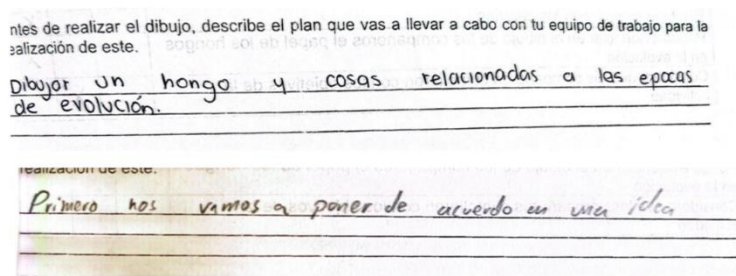 ntes de realizar el dibujo, describe el plan que vas a llevar a cabo con tu equipo de trabajo para la
ealización de este.
Dibujar un hongo y cosas relacionadas a las epocas
de evolución.
realización de este.
Primero nos vamos a poner de acuerdo en una idea